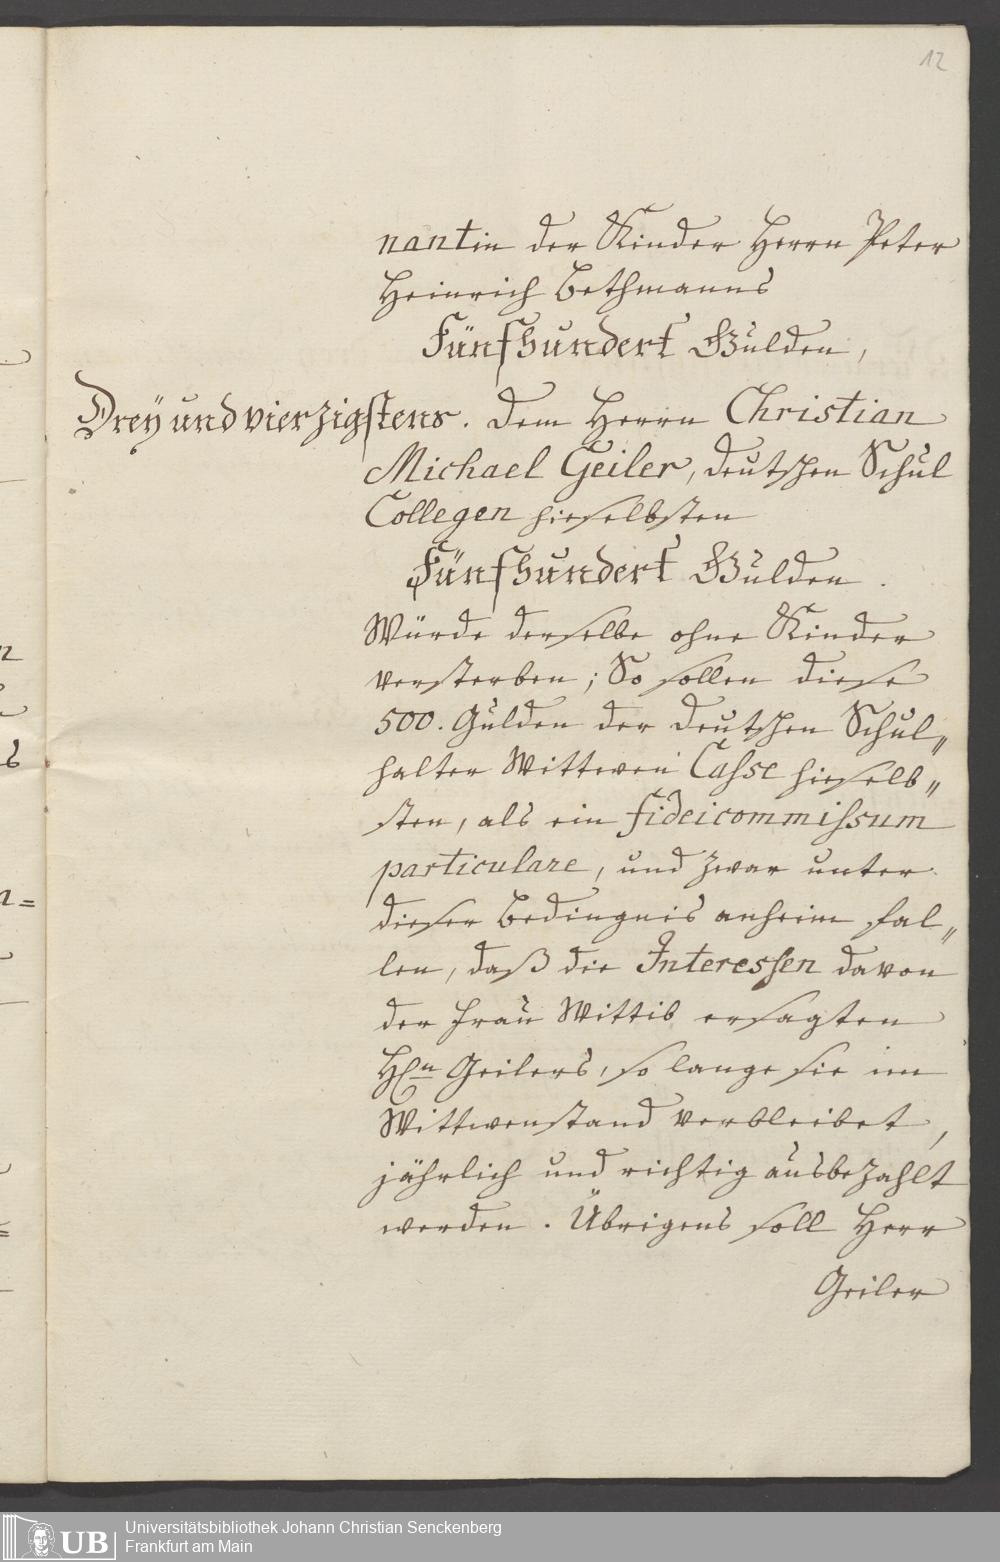 12
nantin der Kinder Herrn Peter
Heinrich Bethmanns
Fünfhundert Gulden,
Dreÿ und vierzigstens. Dem Herrn Christian
Michael Geiler, deutschen Schul
Collegen hieselbsten
Fünfhundert Gulden.
Würde derselbe ohne Kinder
versterben; So sollen diese
500. Gulden der deutschen Schul„
halter Wittwen Casse hieselb„
sten, als ein fideicommissum
particulare, und zwar unter
dieser Bedingnis anheim fal„
len, daß die Interessen davon
der Frau Wittib ersagten
H̲n̲ Geilers, so lange sie im
Wittwenstand verbleibet,
jährlich und richtig ausbezahlt
werden. Übrigens soll Herr
Geiler
UB
Universitätsbibliothek Johann Christian Senckenberg
Frankfurt am Main